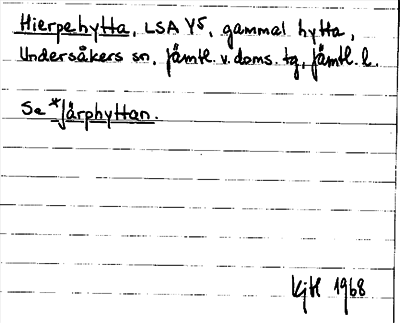 Hierpehytta, LSA Y5, gammal hytta,
Undersåkers sn, Jämtl. v. doms. tg, Jämtl. l.
Se *Järphyttan.
KjH 1968